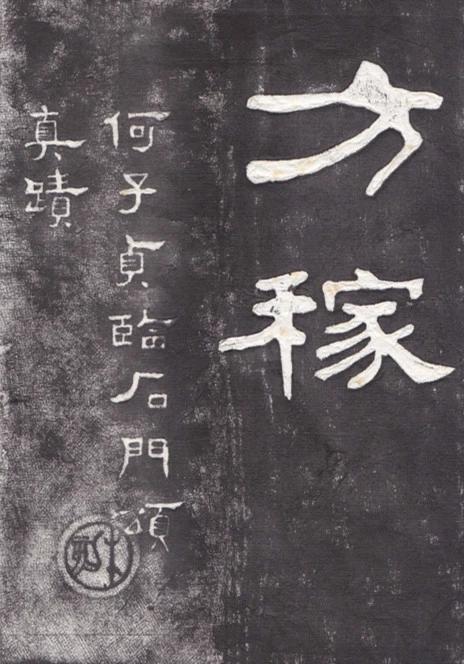 方稼
何子貞臨石門頌
真蹟